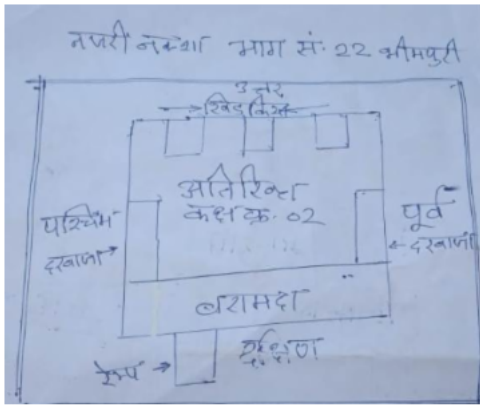 नजरी नक्शा भाग सं. 22 भीमपुरी
उत्तर
खिड़किया
अतिरिक्त
कक्ष क्र. 02
पश्चिम
दरवाजा
पूर्व
दरवाजा
बरामदा
दक्षिण
रैम्प